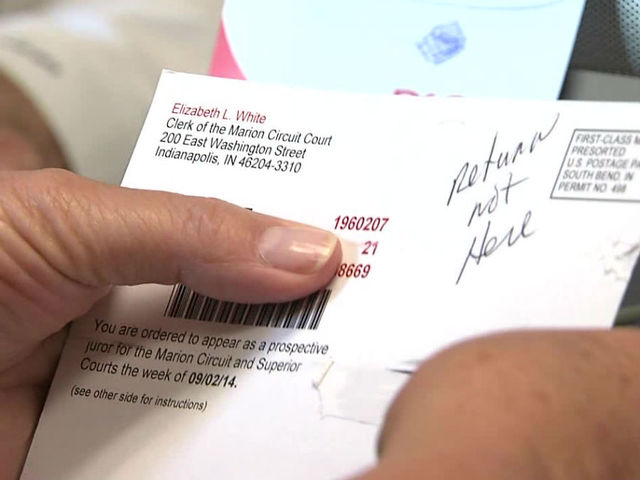 Elizabeth L. White
Clerk of the Marion Circuit Court
200 East Washington Street
Indianapolis, IN 46204-3310
Return
not
Here
FIRST-CLASS
PRESORTED
U.S. POSTAGE
SOUTH BEND, IN
PERMIT NO. 498
1960207
21
8669
You are ordered to appear as a prospective
juror for the Marion Circuit and Superior
Courts the week of 09/02/14.
(see other side for instructions)